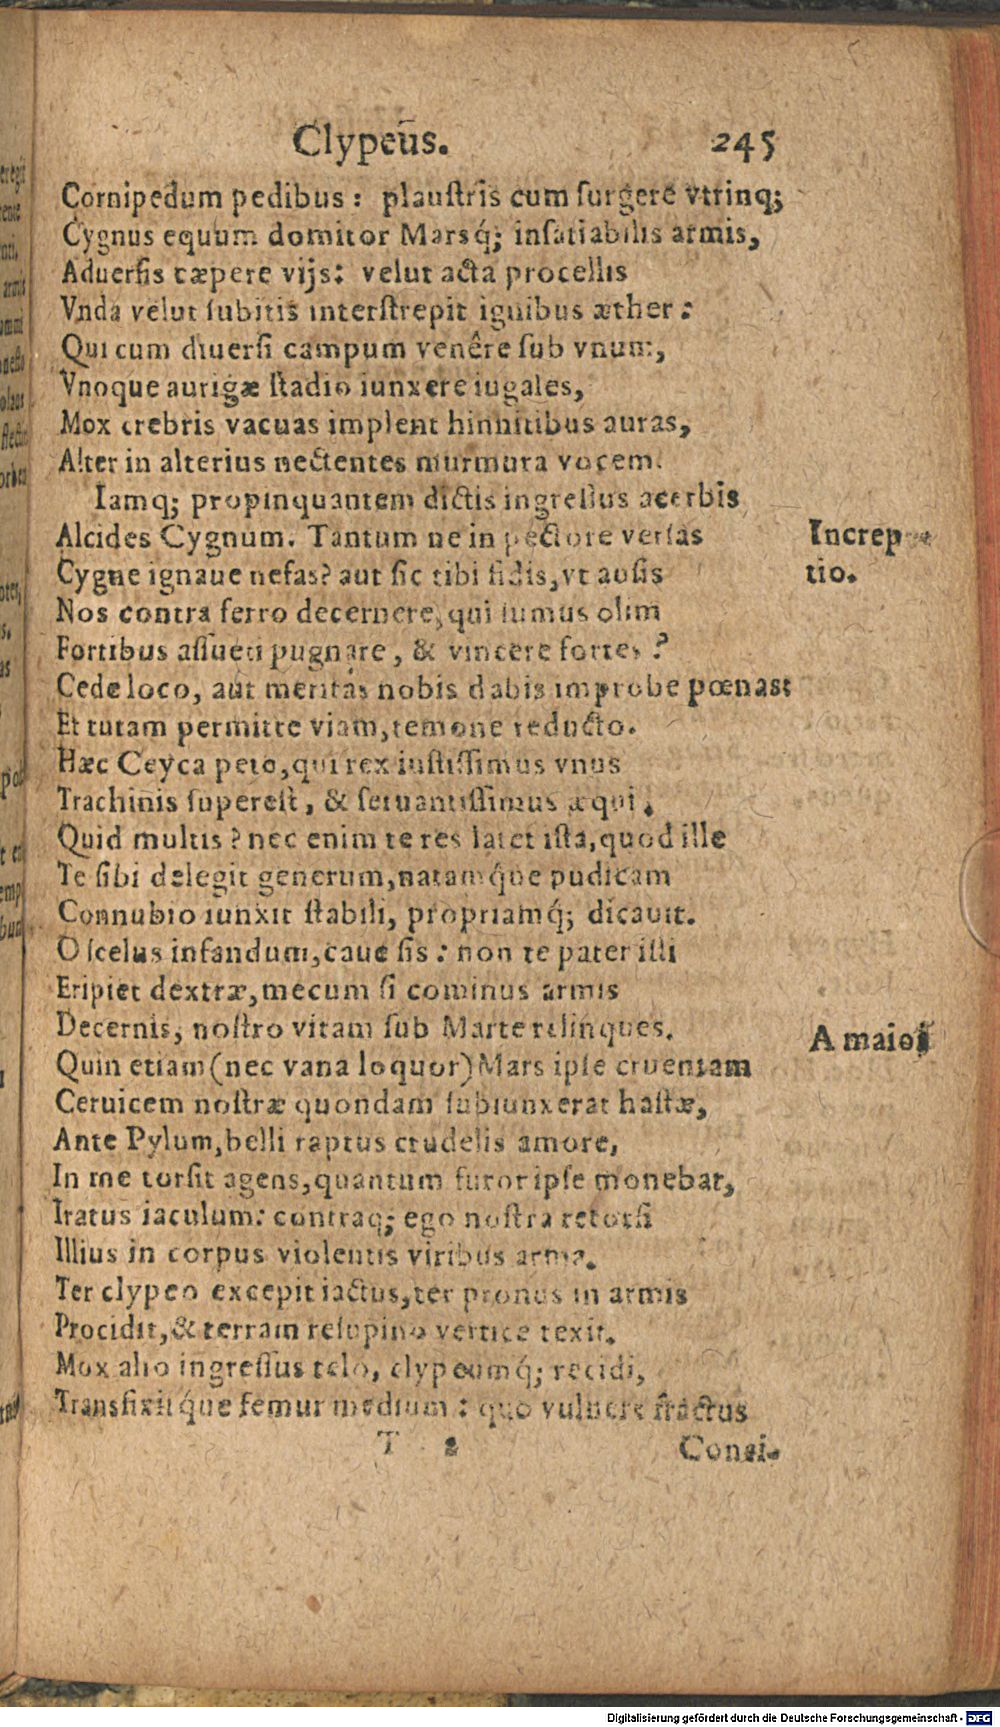 Clypeūs. 245
Cornipedum pedibus: plauſtris cum ſurgere vtrinq;
Cygnus equum domitor Marsq́; inſatiabilis armis,
Aduerſis cæpere vijs: velut acta procellis
Vnda velut ſubitis interſtrepit ignibus æther:
Qui cum diuerſi campum venêre ſub vnum,
Vnoque aurigæ ſtadio iunxere iugales,
Mox crebris vacuas implent hinnitibus auras,
Alter in alterius nectentes murmura vocem.
Iamq; propinquantem dictis ingreſſus acerbis
Alcides Cygnum. Tantum ne in pectore verſas
Increp
Cygne ignaue nefas? aut ſic tibi fidis, vt auſis
tio.
Nos contra ferro decernere, qui ſumus olim
Fortibus aſſueti pugnare, & vincere fortes?
Cede loco, aut meritás nobis dabis improbe pœnas:
Et tutam permitte viam, temone reducto.
Hæc Ceyca peto, qui rex iuſtiſſimus vnus
Trachinis ſupereſt, & ſeruantiſſimus æqui.
Quid multis? nec enim te res latet iſta, quod ille
Te ſibi delegit generum, natamq́ue pudicam
Connubio iunxit ſtabili, propriamq́; dicauit.
O ſcelus infandum, caue ſis: non te pater illi
Eripiet dextræ, mecum ſi cominus armis
Decernis, noſtro vitam ſub Marte relinques.
A maiori
Quin etiam (nec vana loquor) Mars ipſe cruentam
Ceruicem noſtræ quondam ſubiunxerat haſtæ,
Ante Pylum, belli raptus crudelis amore,
In me torſit agens, quantum furor ipſe monebat,
Iratus iaculum: contraq; ego noſtra retorſi
Illius in corpus violentis viribus arma.
Ter clypeo excepit iactus, ter pronus in armis
Procidit, & terram reſupino vertice texit.
Mox alio ingreſſus telo, clypeumq́; recidi,
Transfixitq́ue femur medium: quo vulnere fractus
T 2 Consi-
Digitalisierung gefördert durch die Deutsche Forschungsgemeinschaft - DFG